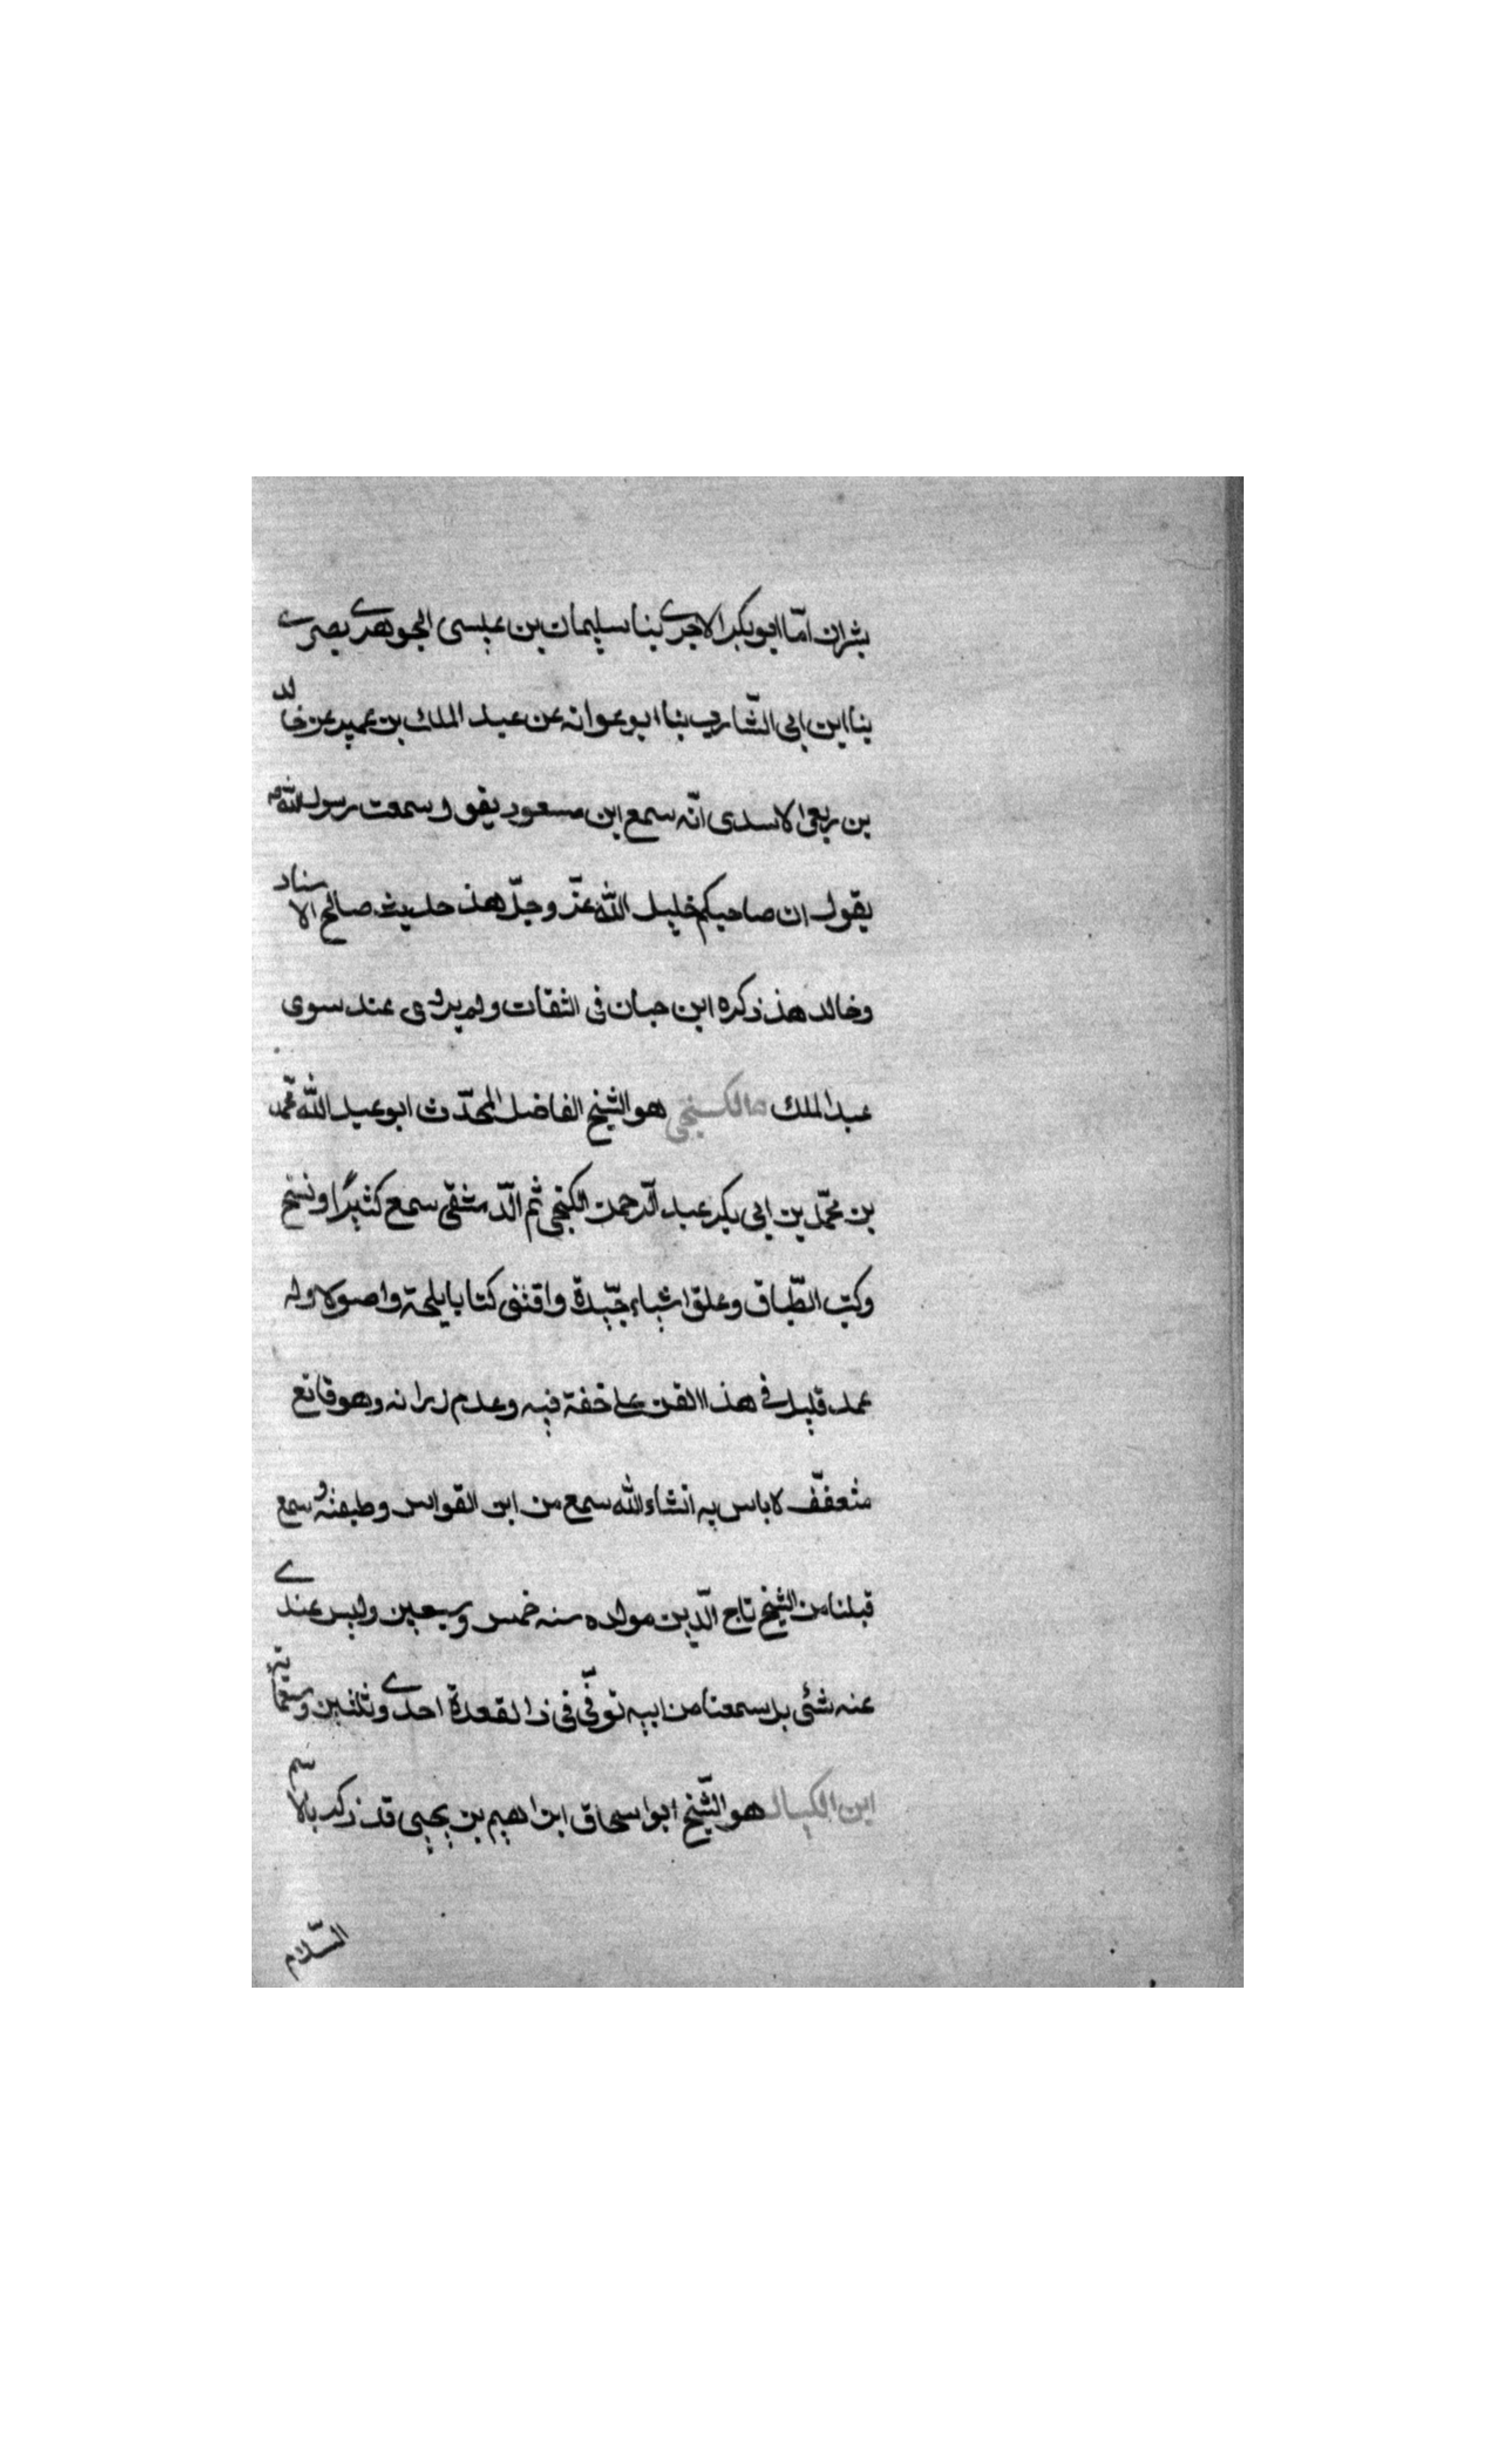 بشران امّا ابو بكر الاجرى بنا سليمان بن عيسى الجوهرى بصرى
بنا ابن ابى الشّارب بنا ابو عوانه عن عبد الملك بن عمير عن خالد
بن ربعى الاسدى انّه سمع ابن مسعود يقول سمعت رسول الله
يقول ان صاحبكم خليل الله عزّ وجلّ هذ حديث صالح الاسناد
وخالد هذ ذكره ابن حبان فى الثقات ولم يروى عنه سوى
عبد الملك هو الشيخ الفاضل المحدّث ابو عبد الله محمّد
بن محمّد بن ابى بكر عبد الرّحمن الكنجى ثم الدّمشقى سمع كثيرًا ونسخ
وكتب الطّباق وعلق اشياء جيّدة واقتنى كتابا يلحة واصولا وله
عمل قليل فى هذا الفن على خفة فيه وعدم رزانه وهو قانع
متعفّف لا باس به انشاء الله سمع من ابن القواس وطبقته وسمع
قبلنا من الشيخ تاج الدّين مولده سنه خمس وسبعين وليس عندى
عنه شئى بل سمعنا من ابيه توفّى فى ذا لقعدة احدى وثلثين وسبعمائة
ابن الكيال هو الشّيخ ابو اسحاق ابراهيم بن يحيى قد ذكر بالاسم
السّلام